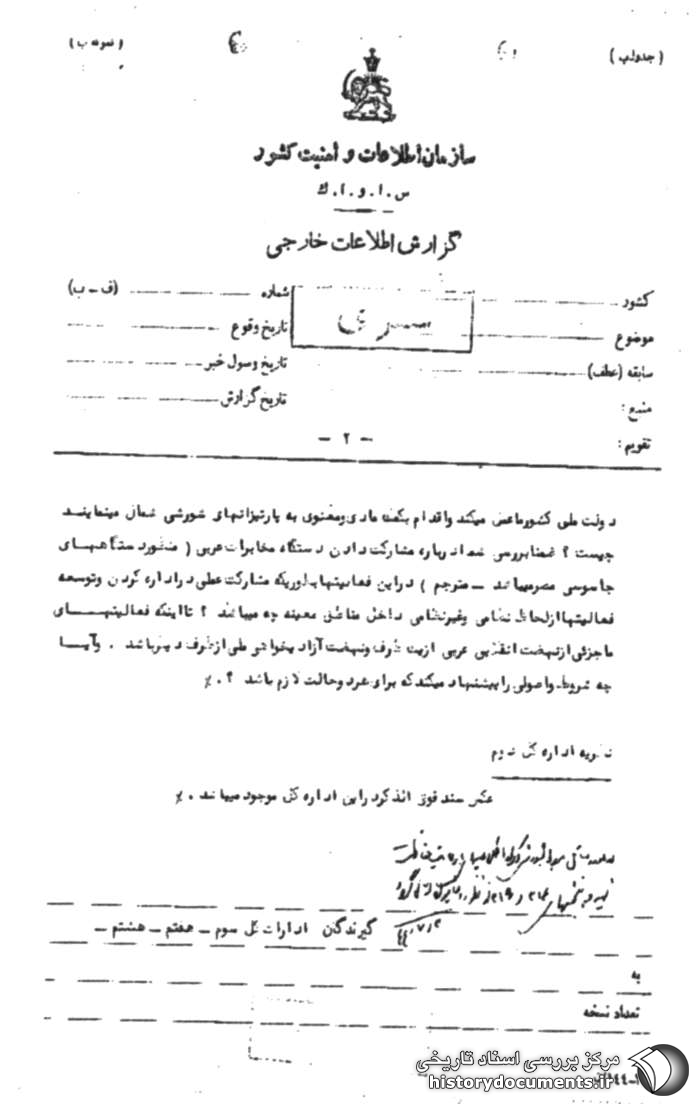 (جدول ب)
(نمونه ب)
سازمان اطلاعات و امنیت کشور
س.ا.و.ا.ك
گزارش اطلاعات خارجی
کشور
شماره (ف - ب)
سری
موضوع
تاریخ وقوع
سابقه (عطف)
تاریخ وصول خبر
منبع:
تاریخ گزارش
تقویم:
- ۲ -
دولت ملی کشور ما عمل میکند و اقدام بکمک مادی و معنوی به پارتیزانهای شورشی شمال مینمایند
چیست ؟ ضمنا بررسی شما درباره مشارکت دادن دستگاه مخابرات عربی ( منظور دستگاههای
جاسوسی مصر میباشد - مترجم ) در این فعالیتها بطوریکه مشارکت عملی در اداره کردن و توسعه
فعالیتها از لحاظ نظامی و غیرنظامی داخل مناطق معینه چه میباشد ؟ تا اینکه فعالیتهای
ما جزئی از نهضت انقلابی عربی از یک طرف و نهضت آزادیخواهی ملی از طرف دیگر باشد . و آیا
چه شروط و اصولی را پیشنهاد میکند که برای هر دو حالت لازم باشد ؟ ./
نظریه اداره کل دوم
عکس سند فوق الذکر در این اداره کل موجود میباشد ./
۴۴/۷/۲
گیرندگان ادارات کل سوم - هفتم - هشتم -
به
تعداد نسخه
مرکز بررسی اسناد تاریخی
historydocuments.ir